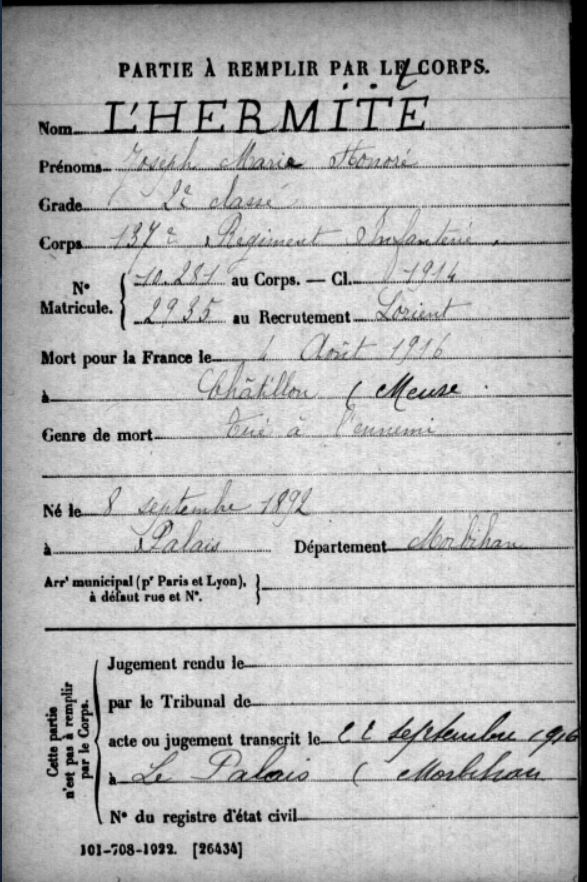 PARTIE À REMPLIR PAR LE CORPS.
Nom L'HERMITE
Prénoms Joseph Marie Honoré
Grade 2e classe
Corps 137e Régiment Infanterie.
N° Matricule. { 10.281 au Corps. — Cl. 1914
2935 au Recrutement Lorient
Mort pour la France le 4 Août 1916
à Châtillon ( Meuse
Genre de mort Tué à l'ennemi
Né le 8 septembre 1892
à Palais Département Morbihan
Arrt municipal (pr Paris et Lyon), }
à défaut rue et N°.
Cette partie n'est pas à remplir par le Corps.
Jugement rendu le
par le Tribunal de
acte ou jugement transcrit le 22 septembre 1916
à Le Palais ( Morbihan
N° du registre d'état civil
101-708-1922. [26434]